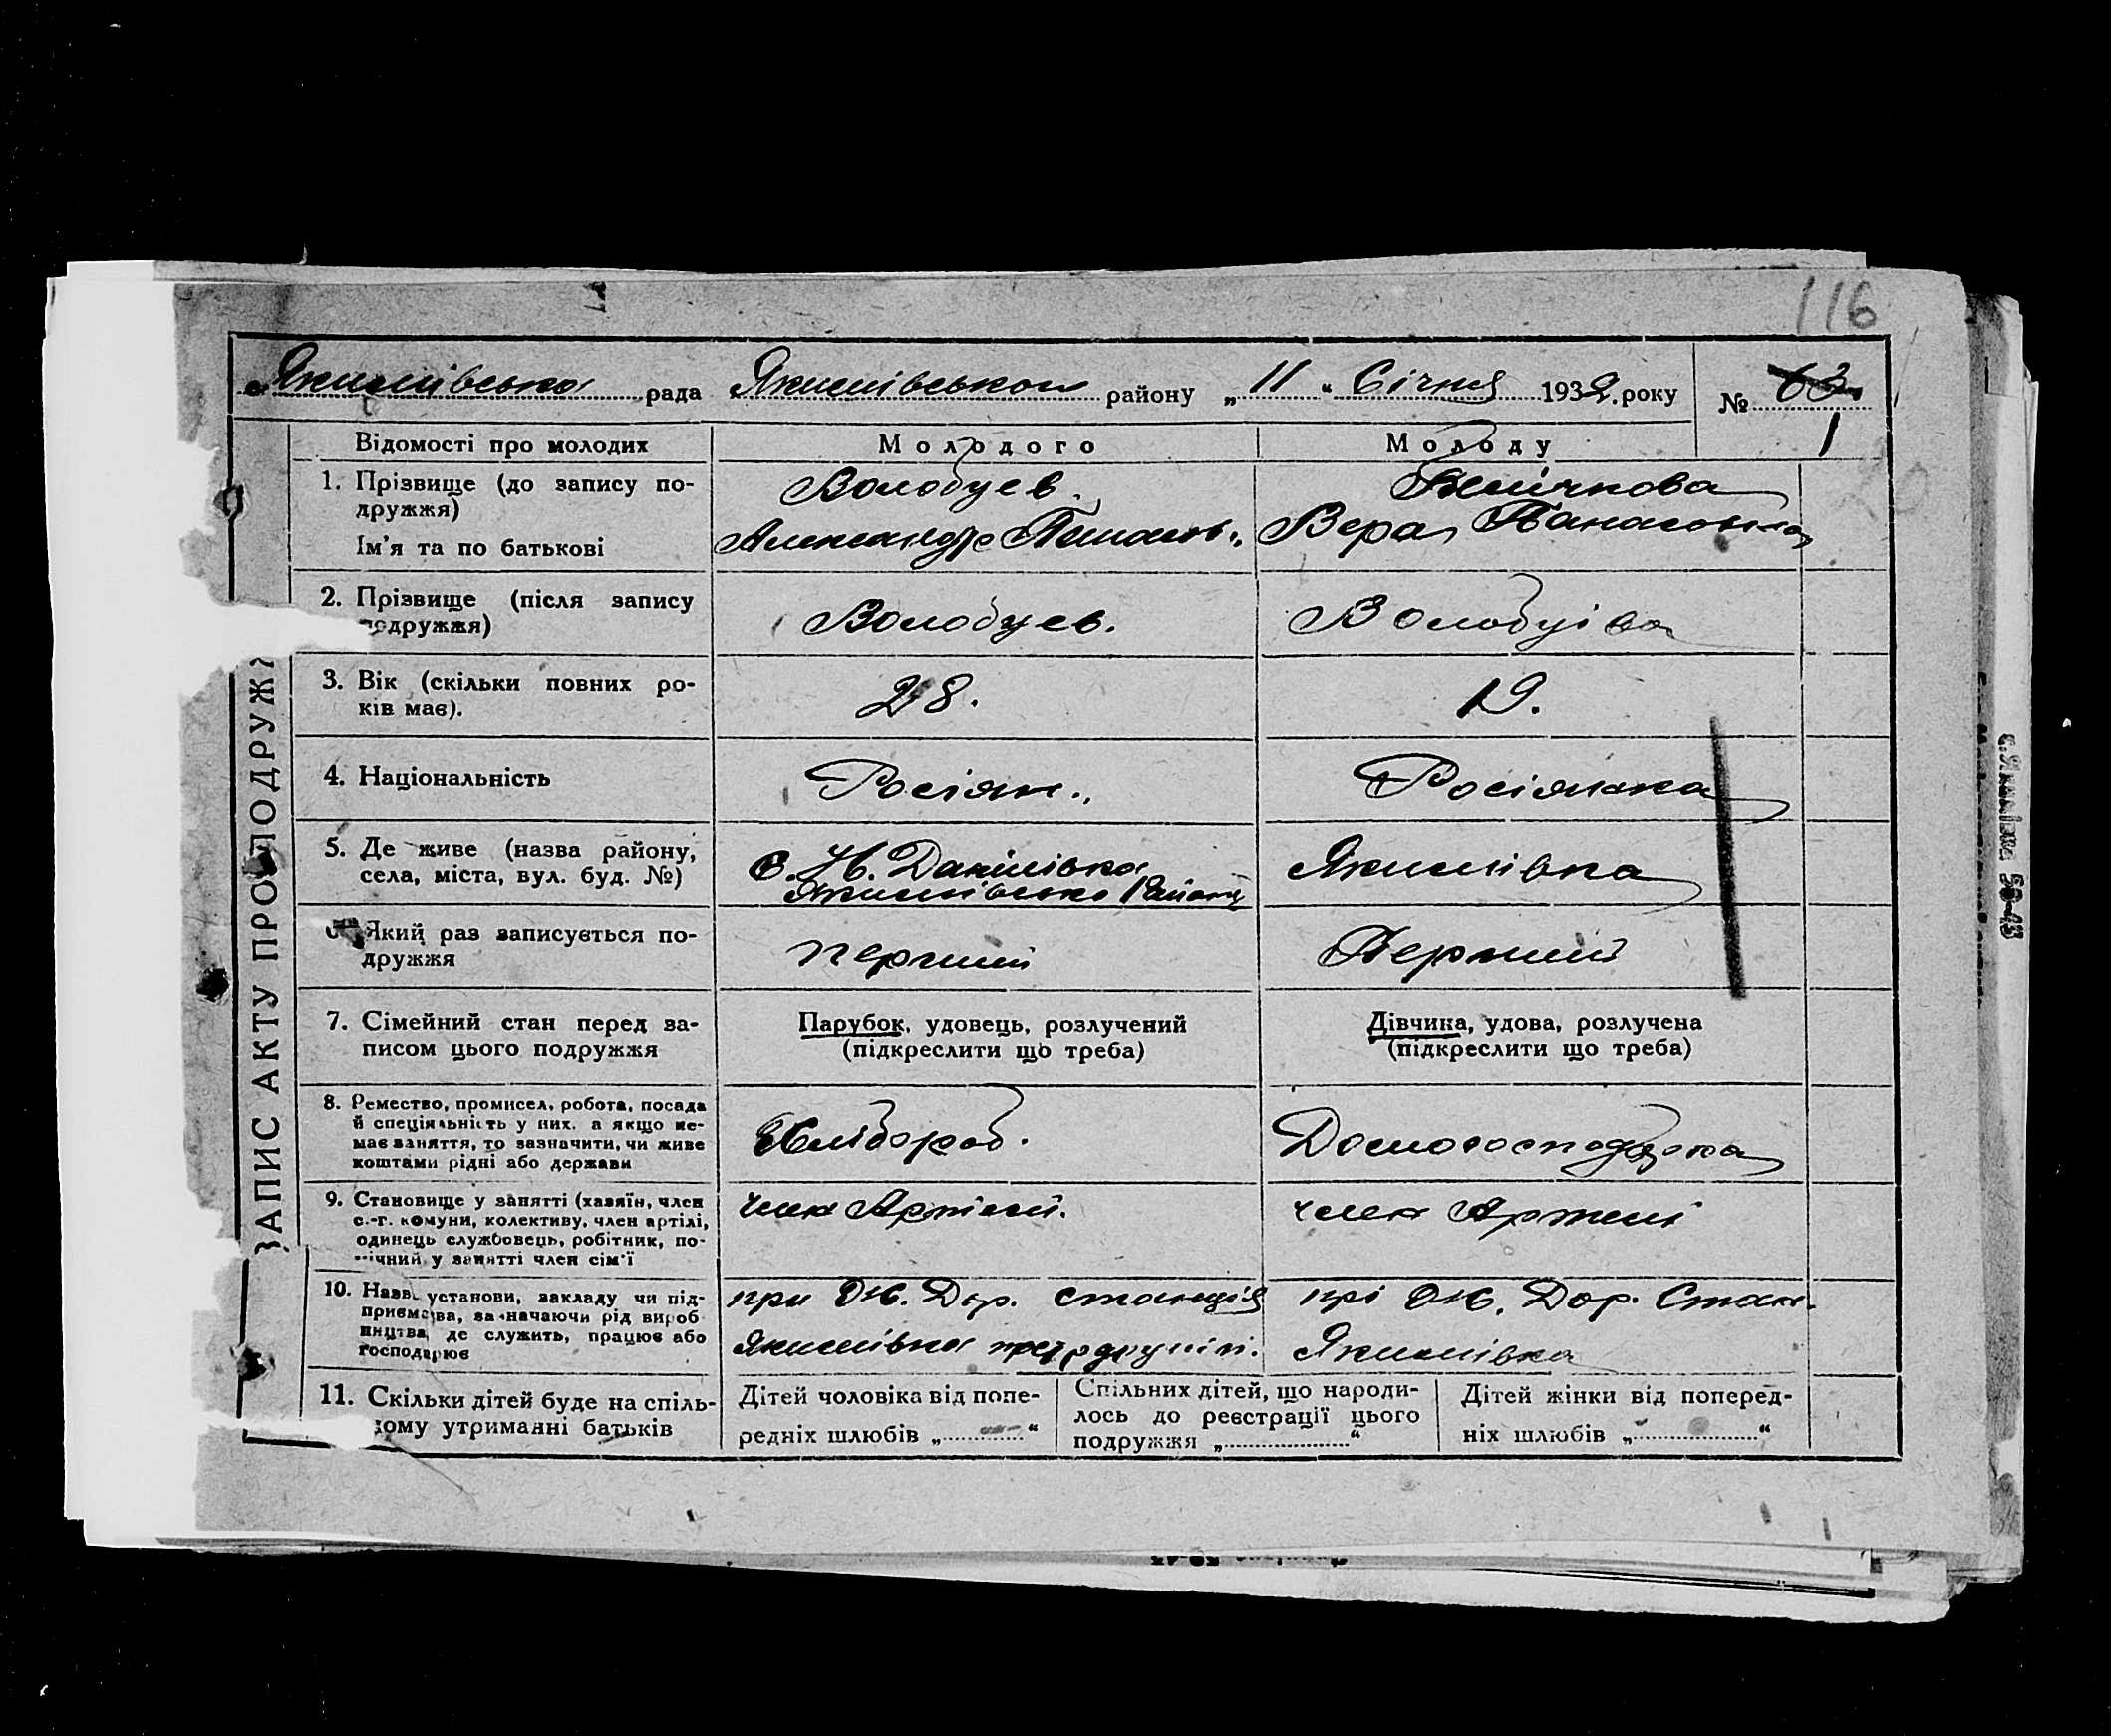 116
Якимівська рада Якимівського району „11“ Січня 1932 року № 63
1
ЗАПИС АКТУ ПРО ПОДРУЖ
Відомості про молодих Молодого Молоду
1. Прізвище (до запису по-
дружжя)
Ім'я та по батькові
Волобуев
Александр
Вера Панасовна
2. Прізвище (після запису
подружжя)
Волобуев.
Волобуіва
3. Вік (скільки повних ро-
ків має).
28.
19.
4. Національність
Росіян.
Росіянка
5. Де живе (назва району,
села, міста, вул. буд. №)
С. Н. Данілівка
Якимівсько Району
Якимівка
6. Який раз записується по-
дружжя
перший
Перший
7. Сімейний стан перед за-
писом цього подружжя
Парубок, удовець, розлучений
(підкреслити що треба)
Дівчина, удова, розлучена
(підкреслити що треба)
8. Ремество, промисел, робота, посада
й спеціяльність у них, а якщо не-
має заняття, то зазначити, чи живе
коштами рідні або держави
Хлібороб.
Домогосподарка
9. Становище у занятті (хазяїн, член
с.-г. комуни, колективу, член артілі,
одинець службовець, робітник, по-
мічний у занятті член сім'ї
член Артілі.
член Артелі
10. Назва установи, закладу чи під-
приємства, зазначаючи рід вироб
ництва, де служить, працює або
господарює
при Ж. Дор. станція
Якимівка
прі Ж. Дор. Стан.
Якимівка
11. Скільки дітей буде на спіль-
ному утриманні батьків
Дітей чоловіка від попе-
редніх шлюбів „ “
Спільних дітей, що народи-
лось до реєстрації цього
подружжя „ “
Дітей жінки від поперед-
ніх шлюбів „ “